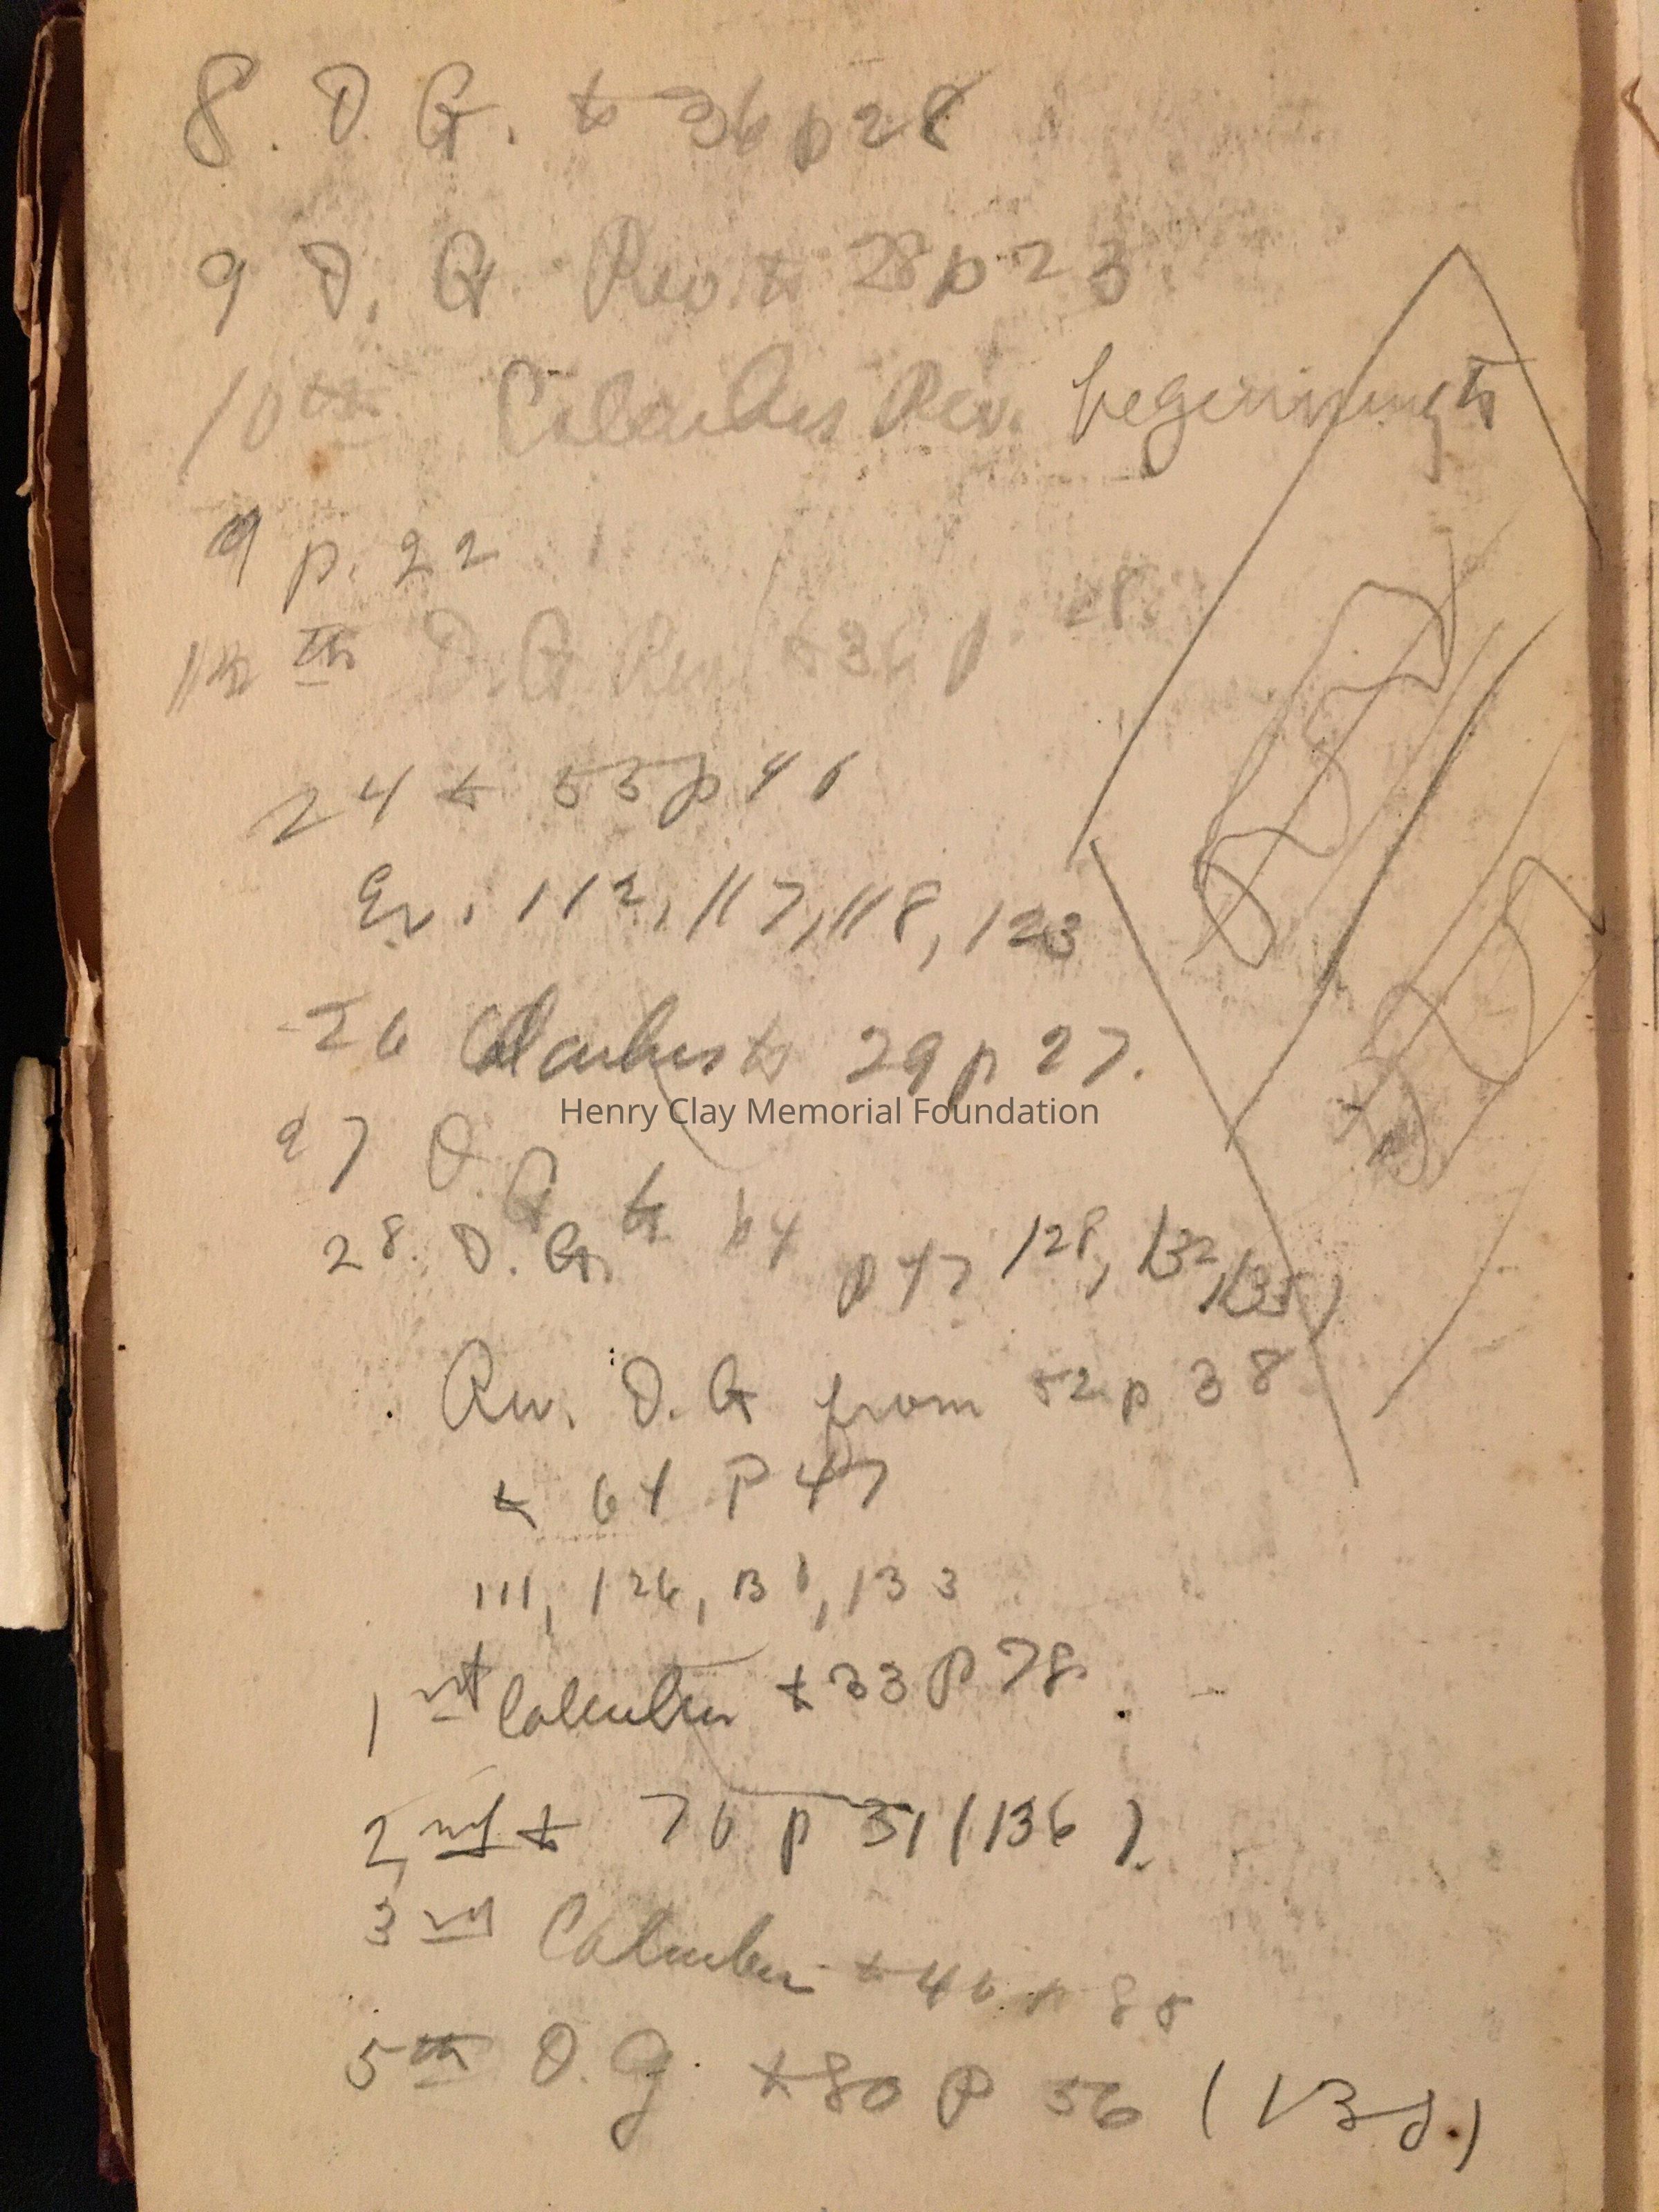 8. D. G. to 36 p 28
9 D. G. Rev. to 28 p 23.
10th Calculus Rev. beginning to
9 p. 22
th D. G. Rev to 36 p. 28.
24 to 55 p 46
Ex. 112, 117, 118, 123
26 Calculus to 29 p 27.
Henry Clay Memorial Foundation
27 D. G. to 64
28. D. G. p 47 128, 132, 135)
Rev. D. G from 52 p 38
to 64 P 47
111, 126, 131, 133
1st Calculus to 33 p 78.
2nd to 76 p 51 (136).
3rd Calculus to 46 p 85
5th D. G. to 80 p 56 (138)